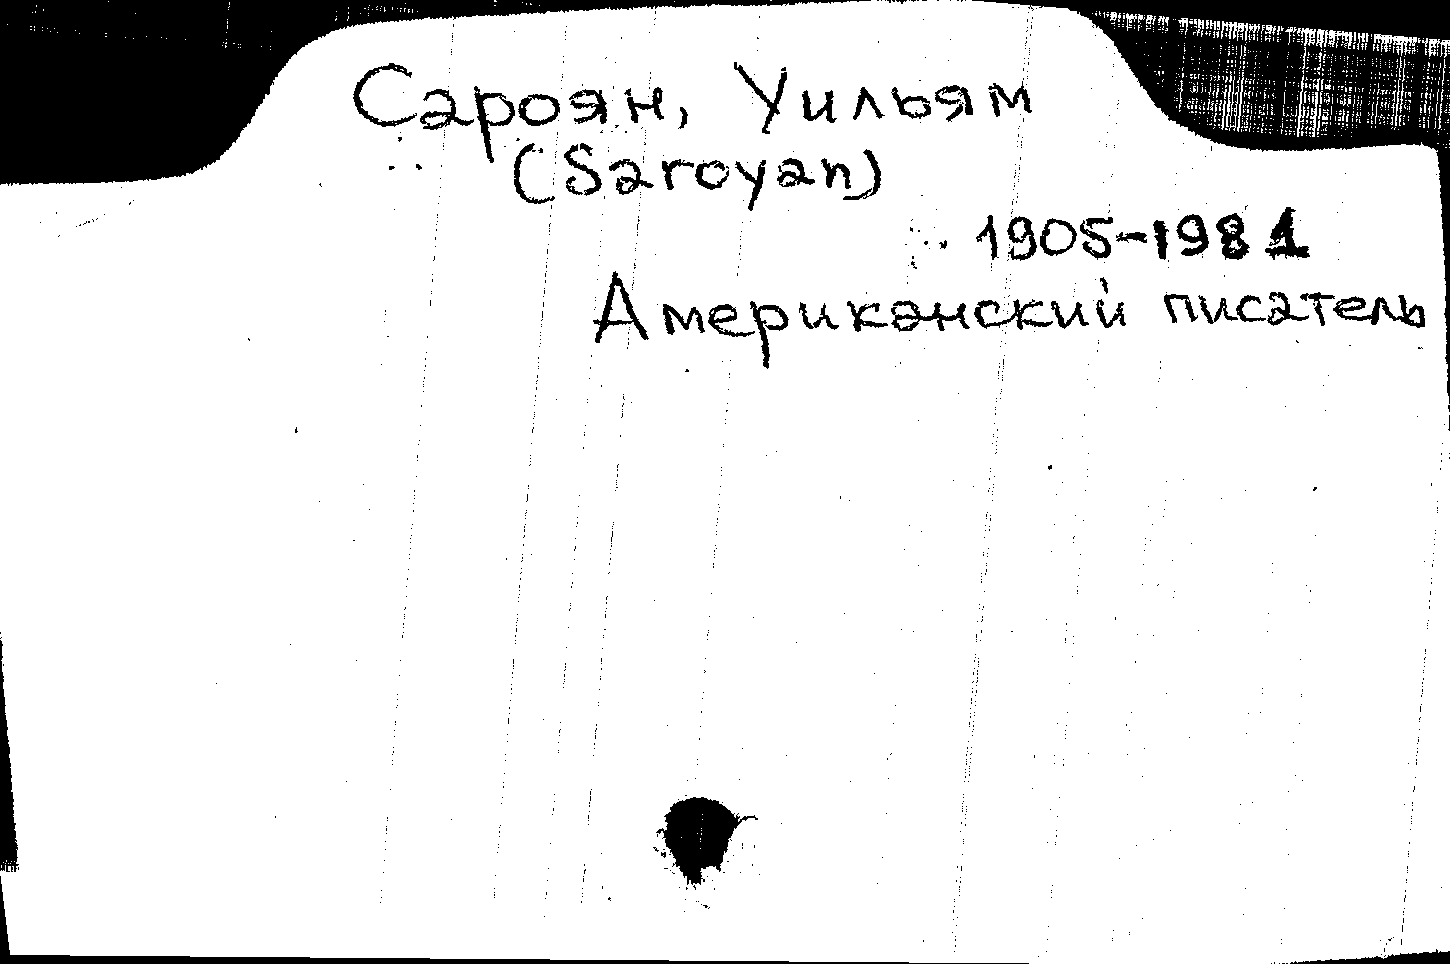 Сароян, Уильям
(Saroyan)
1905-1981
Американский писатель